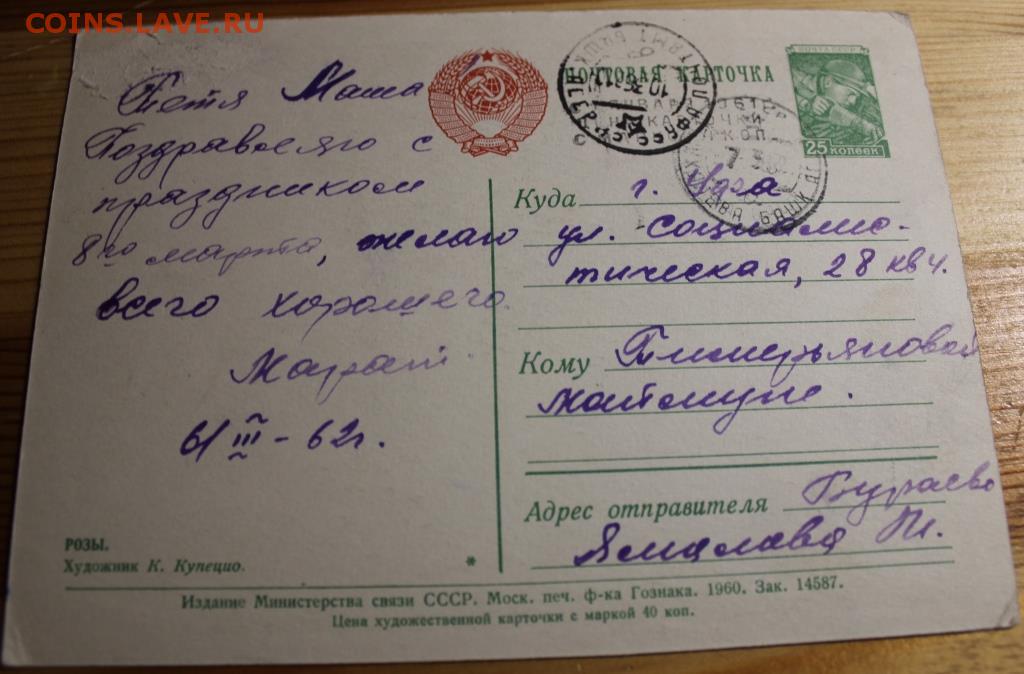 COINS.LAVE.RU
Тетя Маша
Поздравляю с
праздником
8го марта, желаю
всего хорошего.
Марат
6/III-62г.
РОЗЫ.
Художник К. Купецио.
ПОЧТОВАЯ КАРТОЧКА
ПОЧТА СССР
25 КОПЕЕК
Куда г. Уфа
ул. Социалис-
тическая, 28 кв 4.
Кому Тимерьяновой
Адрес отправителя Бураево
Ямалава М.
Издание Министерства связи СССР. Моск. печ. ф-ка Гознака. 1960. Зак. 14587.
Цена художественной карточки с маркой 40 коп.